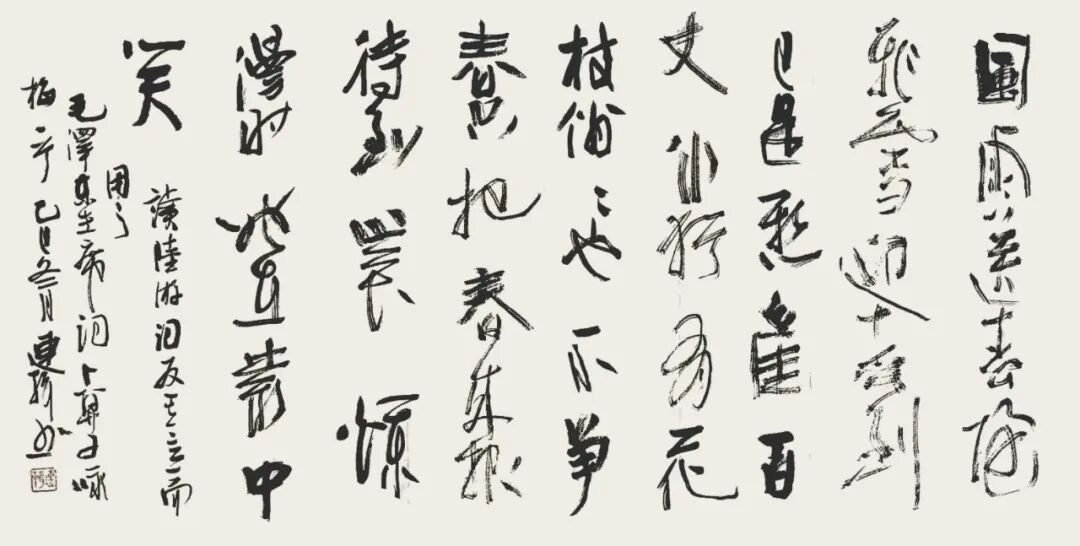 風雨送春歸
飛雪迎春到
已是懸崖百
丈冰猶有花
枝俏〻也不爭
春只把春來報
待到山花爛
漫时她在叢中
笑
讀陸游詞反其意而
用之
毛澤東主席詞卜算子咏
梅 乙巳冬月 书